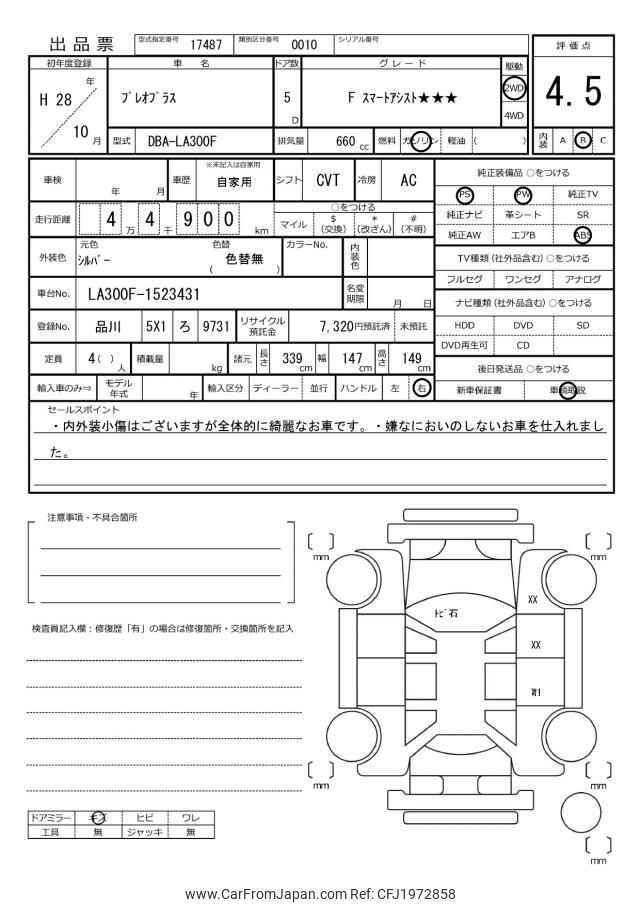 出品票
型式指定番号 17487 類別区分番号 0010 シリアル番号
評価点
4.5
初年度登録 車名 ドア数 グレード 駆動
H 28 年 10 月
プレオプラス 5 D F スマートアシスト★★★
2WD
4WD
型式 DBA-LA300F 排気量 660 cc 燃料 ガソリン 軽油 ( )
内装 A B C
※未記入は自家用
車検 年 月 車歴 自家用 シフト CVT 冷房 AC
走行距離 4 万 4 千 9 0 0 km
○をつける
マイル $(交換) *(改ざん) #(不明)
外装色 元色 シルバー 色替 ( 色替無 ) カラーNo. 内装色
車台No. LA300F-1523431 名変期限 月 日
登録No. 品川 5X1 ろ 9731 リサイクル預託金 7,320円預託済 未預託
定員 4( )人 積載量 kg 諸元 長さ 339 cm 幅 147 cm 高さ 149 cm
輸入車のみ⇒ モデル年式 年 輸入区分 ディーラー 並行 ハンドル 左 右
純正装備品 ○をつける
PS PW 純正TV
純正ナビ 革シート SR
純正AW エアB ABS
TV種類 (社外品含む) ○をつける
フルセグ ワンセグ アナログ
ナビ種類 (社外品含む) ○をつける
HDD DVD SD
DVD再生可 CD
後日発送品 ○をつける
新車保証書 車輌取説
セールスポイント
・内外装小傷はございますが全体的に綺麗なお車です。・嫌なにおいのしないお車を仕入れまし
た。
注意事項・不具合箇所
検査員記入欄：修復歴「有」の場合は修復箇所・交換箇所を記入
mm
mm
トビ石
XX
XX
mm
mm
mm
ドアミラー キズ ヒビ ワレ
工具 無 ジャッキ 無
www.CarFromJapan.com Ref: CFJ1972858